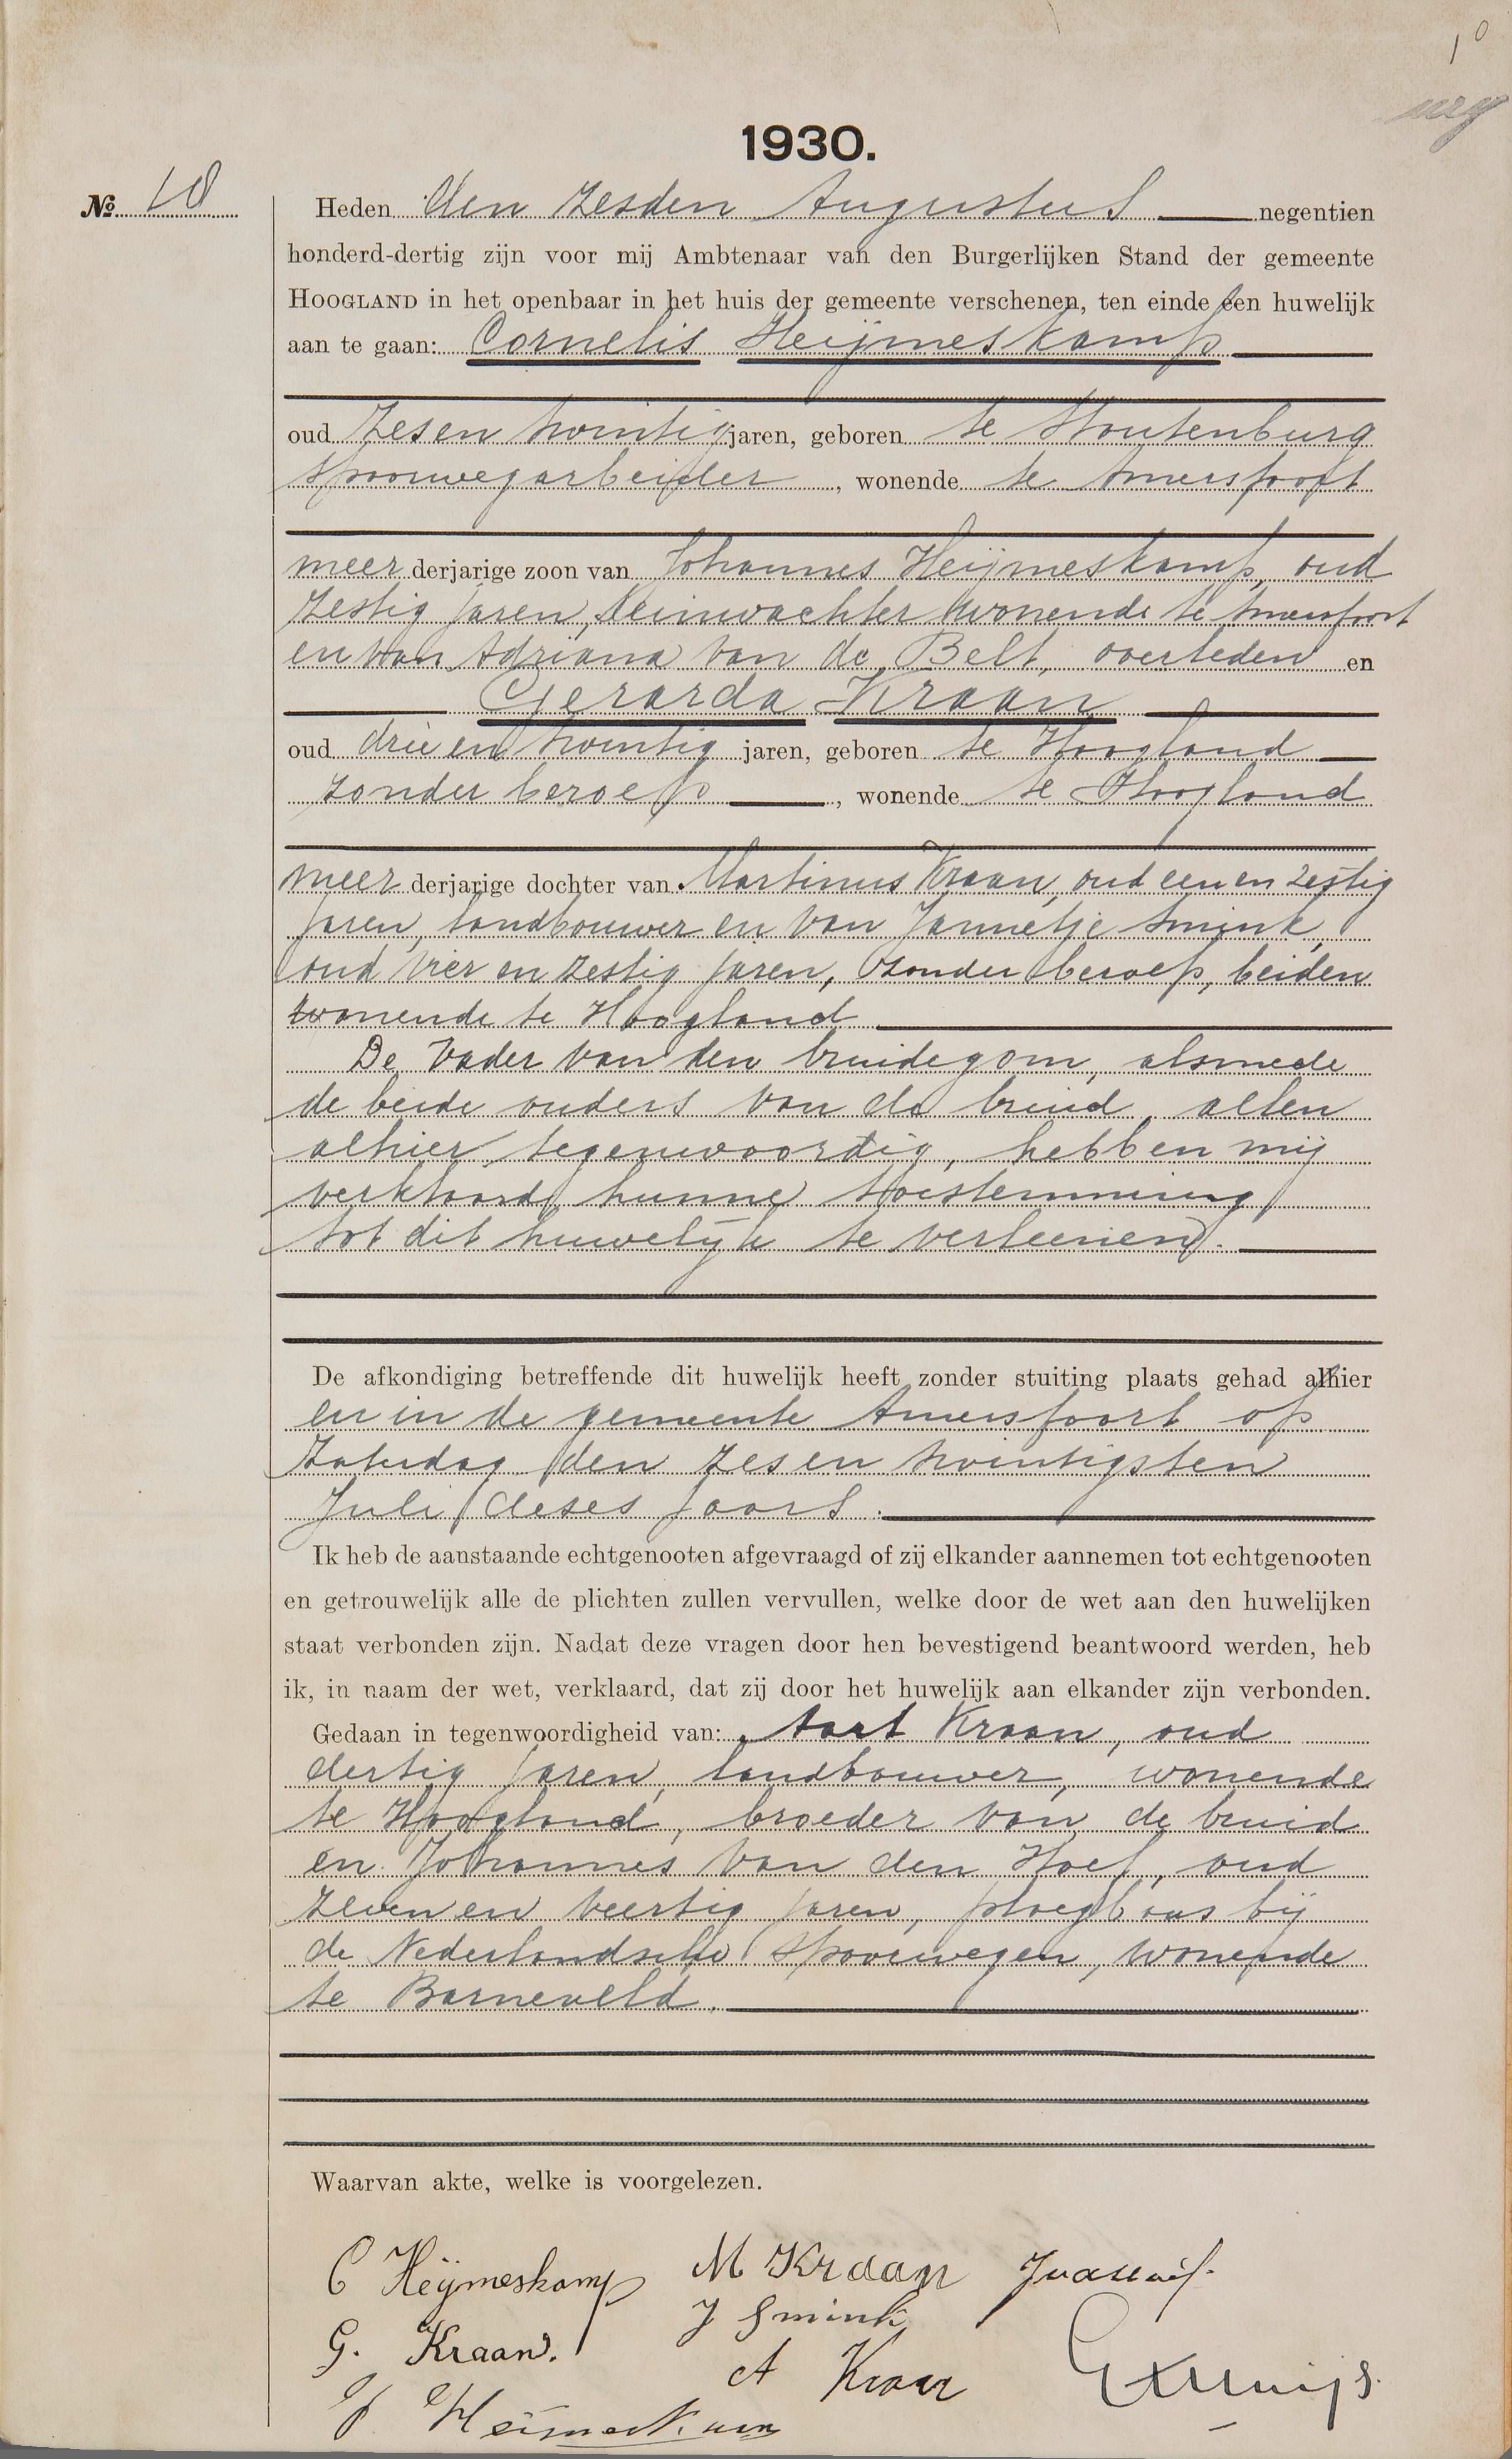 10
1930.
№ 18
Heden den zesden Augustus negentien
honderd-dertig zijn voor mij Ambtenaar van den Burgerlijken Stand der gemeente
HOOGLAND in het openbaar in het huis der gemeente verschenen, ten einde een huwelijk
aan te gaan: Cornelis Heijmeskamp
oud zesen twintig jaren, geboren te Stoutenburg
spoorwegarbeider, wonende te Amersfoort
meerderjarige zoon van Johannes Heijmeskamp, oud
zestig jaren, seinwachter wonende te Amersfoort
en van Adriana van de Belt, overleden en
Gerarda Kraan
oud drie en twintig jaren, geboren te Hoogland
zonder beroep, wonende te Hoogland
meerderjarige dochter van Martinus Kraan, oud een en zestig
jaren, landbouwer en van Jannetje Smink,
oud vier en zestig jaren, zonder beroep, beiden
wonende te Hoogland
De vader van den bruidegom, alsmede
de beide ouders van de bruid, allen
alhier tegenwoordig, hebben mij
verklaard hunne toestemming
tot dit huwelijk te verleenen.
De afkondiging betreffende dit huwelijk heeft zonder stuiting plaats gehad alhier
en in de gemeente Amersfoort op
Zaterdag den zesen twintigsten
Juli deses jaars.
Ik heb de aanstaande echtgenooten afgevraagd of zij elkander aannemen tot echtgenooten
en getrouwelijk alle de plichten zullen vervullen, welke door de wet aan den huwelijken
staat verbonden zijn. Nadat deze vragen door hen bevestigend beantwoord werden, heb
ik, in naam der wet, verklaard, dat zij door het huwelijk aan elkander zijn verbonden.
Gedaan in tegenwoordigheid van: Aart Kraan, oud
dertig jaren, landbouwer, wonende
te Hoogland, broeder van de bruid
en Johannes van den Hoef, oud
zeven en veertig jaren, ploegbaas bij
de Nederlandsche Spoorwegen, wonende
te Barneveld.
Waarvan akte, welke is voorgelezen.
C Heijmeskamp M Kraan
J Smink
G. Kraan.
A Kraan
J Heijmeskamp